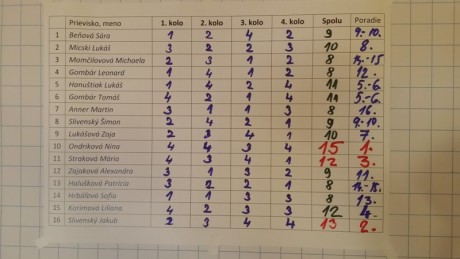 Prievisko, meno 1. kolo 2. kolo 3. kolo 4. kolo Spolu Poradie
1 Beňová Sára 1 2 4 2 9 9.-10.
2 Micski Lukáš 3 2 2 3 10 8.
3 Momčilovová Michaela 2 3 1 2 8 14.-15
4 Gombár Leonard 1 4 1 2 8 12.
5 Hanuštiak Lukáš 1 4 2 4 11 5.-6
6 Gombár Tomáš 4 2 1 4 11 5.-6.
7 Anner Martin 3 1 1 3 8 16.
8 Slivenský Šimon 2 4 2 1 9 9.-10
9 Lukášová Zoja 2 3 4 1 10 7.
10 Ondriková Nina 4 4 3 4 15 1.
11 Straková Mária 4 3 4 1 12 3.
12 Zajaková Alexandra 3 1 3 2 9 11.
13 Halušková Patrícia 3 2 2 1 8
14 Hrbáľová Sofia 1 1 3 3 8 13.
15 Karimová Liliana 4 2 3 3 12 4.
16 Slivenský Jakub 2 3 4 4 13 2.